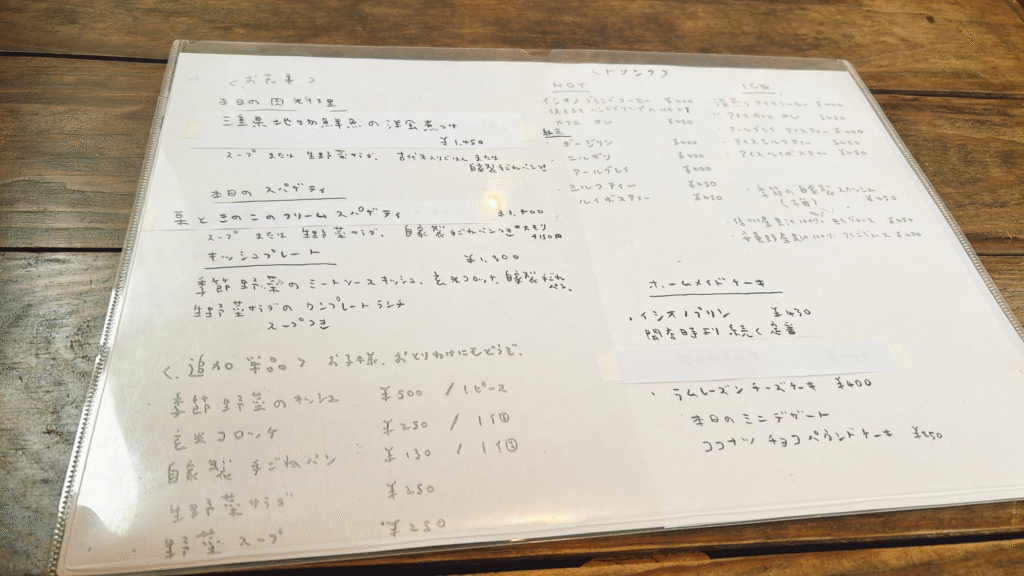 〈お食事〉
本日の 肉 料理
三重県 地物鮮魚の 洋風煮つけ
¥1,450
スープ または 生野菜サラダ、古代米入りごはん または
自家製 手ごねパンつき
本日の スパゲティ
と きのこの クリーム スパゲティ
スープ または 生野菜サラダ、自家製 手ごねパンつき *大モリ
+150円
キッシュプレート ¥1,300
季節 野菜の ミートソース キッシュ、玄米コロッケ、自家製 手ごね
パン、
生野菜サラダの ワンプレート ランチ
スープつき
〈追加 単品〉 お子様、おとりわけにもどうぞ、
季節 野菜の キッシュ ¥500 / 1ピース
玄米 コロッケ ¥250 / 1個
自家製 手ごねパン ¥130 / 1個
生野菜サラダ ¥250
野菜 スープ ¥250
〈ドリンク〉
HOT
イシオノブレンドコーヒー
カフェ オレ
紅茶
ダージリン
ニルギリ
アールグレイ
ミルクティー
ルイボスティー
ICE
アイスコーヒー
アイスカフェ オレ
アールグレイ アイスティー
アイスミルクティー
アイスルイボスティー
季節の自家製 スカッシュ
ホームメイドケーキ
・イシオノプリン ¥430
開店時より 続く 定番
・ラムレーズン チーズケーキ ¥400
本日の ミニデザート
ココナッツ チョコ パウンドケーキ ¥250